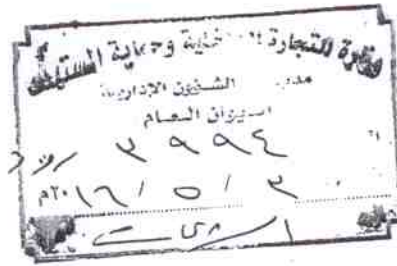 وزارة التجارة الداخلية وحماية المستهلك
الشؤون الإدارية
الديوان العام
٣٩٩٤
٢٠١٦ / ٥ / ٣ م